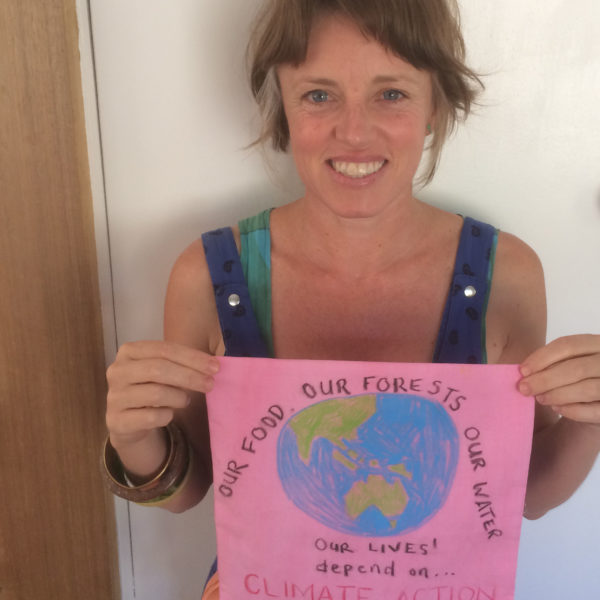 OUR FOOD. OUR FORESTS OUR WATER
OUR LIVES!
depend on...
CLIMATE ACTION